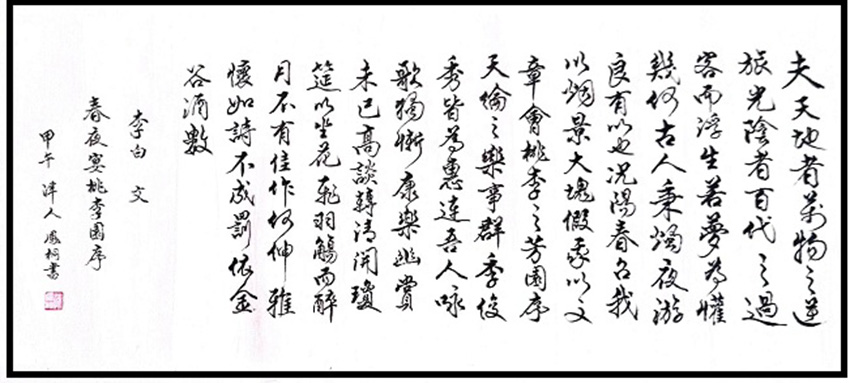 夫天地者萬物之逆
旅光陰者百代之過
客而浮生若夢為懽
幾何古人秉燭夜游
良有以也況陽春召我
以烟景大塊假我以文
章會桃李之芳園序
天倫之樂事群季俊
秀皆為惠連吾人咏
歌獨慚康樂幽賞
未已高談轉清開瓊
筵以坐花飛羽觴而醉
月不有佳作何伸雅
懷如詩不成罰依金
谷酒數
李白 文
春夜宴桃李園序
甲午 津人 鳳桐書